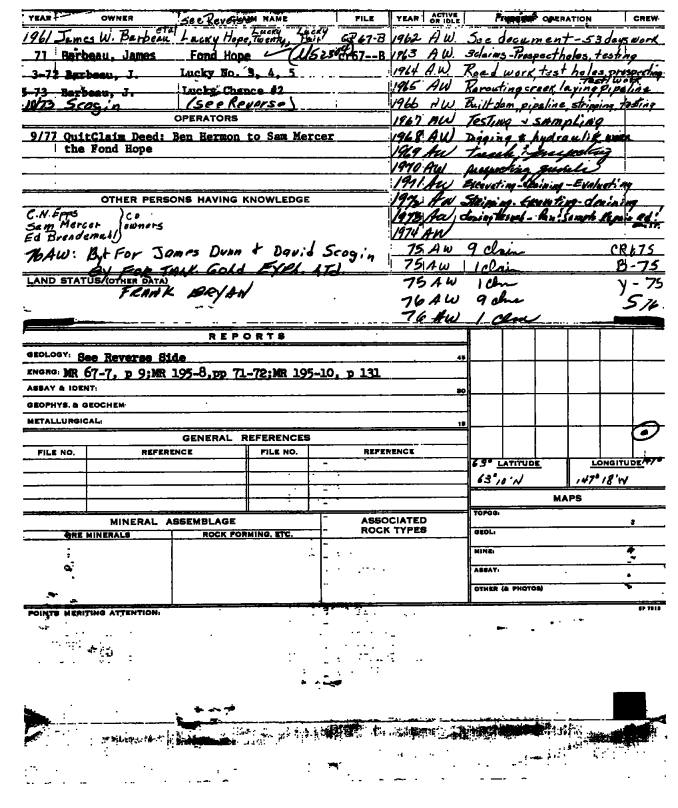 YEAR OWNER See Reverse NAME FILE
1961 James W. Barbeau etal Lucky Hope, Lucky Twenty, Lucky Pair CP 67-B
71 Barbeau, James Fond Hope 67--B
3-72 Barbeau, J. Lucky No. 3, 4, 5
5-73 Barbeau, J. Lucky Chance #2
10/73 Scogin (see Reverse)
OPERATORS
9/77 QuitClaim Deed: Ben Hermon to Sam Mercer
the Fond Hope
OTHER PERSONS HAVING KNOWLEDGE
C.N. Epps
Sam Mercer
Ed Brendemahl
co owners
76 AW: By For James Dunn & David Scogin
By For Gold EXPL. LTD.
LAND STATUS/(OTHER DATA)
FRANK BRYAN
YEAR ACTIVE OR IDLE OPERATION CREW
1962 AW. See document - 53 days work
1963 AW. 3 claims - Prospect holes, testing
1964 A.W. Road work test holes, prospecting
1965 AW. Rerouting creek, laying pipeline
test work
1966 AW Built dam, pipeline, stripping, testing
1967 AW Testing & sampling
1968 AW Digging & hydraulic work
1969 AW trench & prospecting
1970 AW prospecting
1971 AW Excavating - Draining - Evaluating
1972 AW Stripping. Excavating - draining
1973 AW
1974 AW
75 AW 9 claim CR 675
75 AW 1 claim B-75
75 AW 1 clm Y-75
76 AW 9 clms S76
76 AW 1 clm
REPORTS
GEOLOGY: See Reverse Side 45
ENGRG: MR 67-7, p 9;MR 195-8,pp 71-72;MR 195-10, p 131
ASSAY & IDENT: 30
GEOPHYS. & GEOCHEM.
METALLURGICAL: 15
GENERAL REFERENCES
FILE NO. REFERENCE FILE NO. REFERENCE
63° LATITUDE LONGITUDE 147°
63°10'N 147°18'W
MAPS
TOPOG:
GEOL:
MINE:
ASSAY:
OTHER (& PHOTOS)
MINERAL ASSEMBLAGE ASSOCIATED ROCK TYPES
ORE MINERALS ROCK FORMING, ETC.
POINTS MERITING ATTENTION: